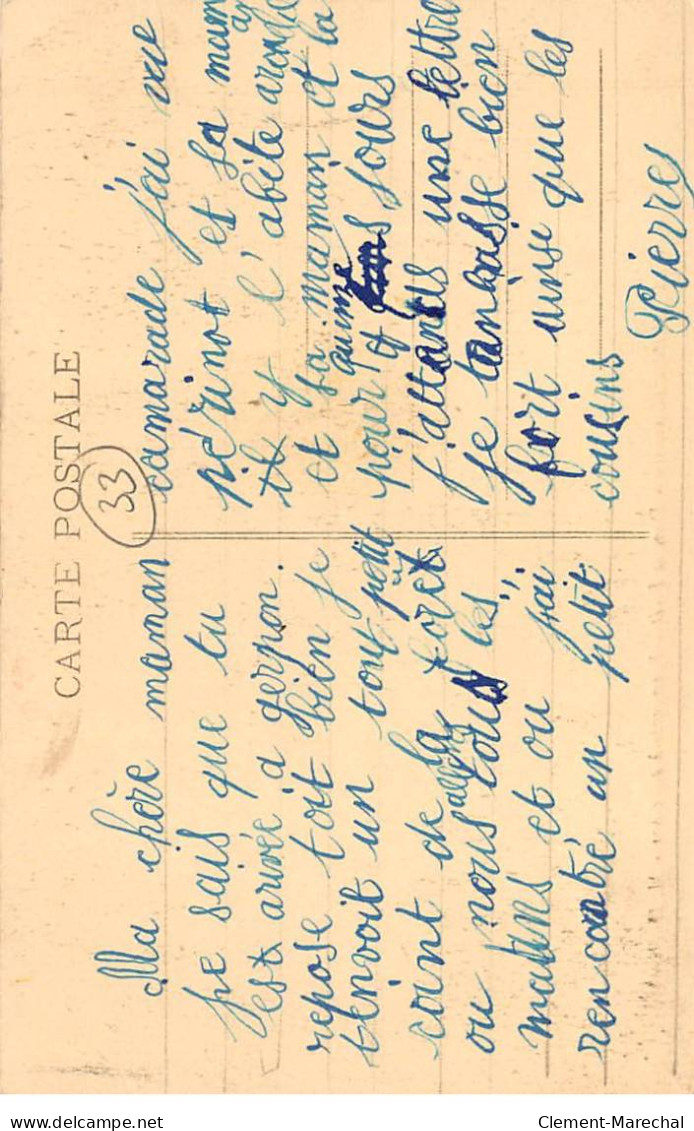 CARTE POSTALE
33
Ma chère maman
je sais que tu
est arivée a gerpon.
repose toit bien je
t'envoit un tout petit
coint de la forêt
ou nous allons tous les
matins et ou j'ai
rencontré un petit
camarade j'ai vue
périnot et sa maman
il y l'abite
et sa maman et la
pour quinze jours
j'attends une lettre
je t'anbrasse bien
fort ainsi que les
cousins
Pierre
Clement-Marechal